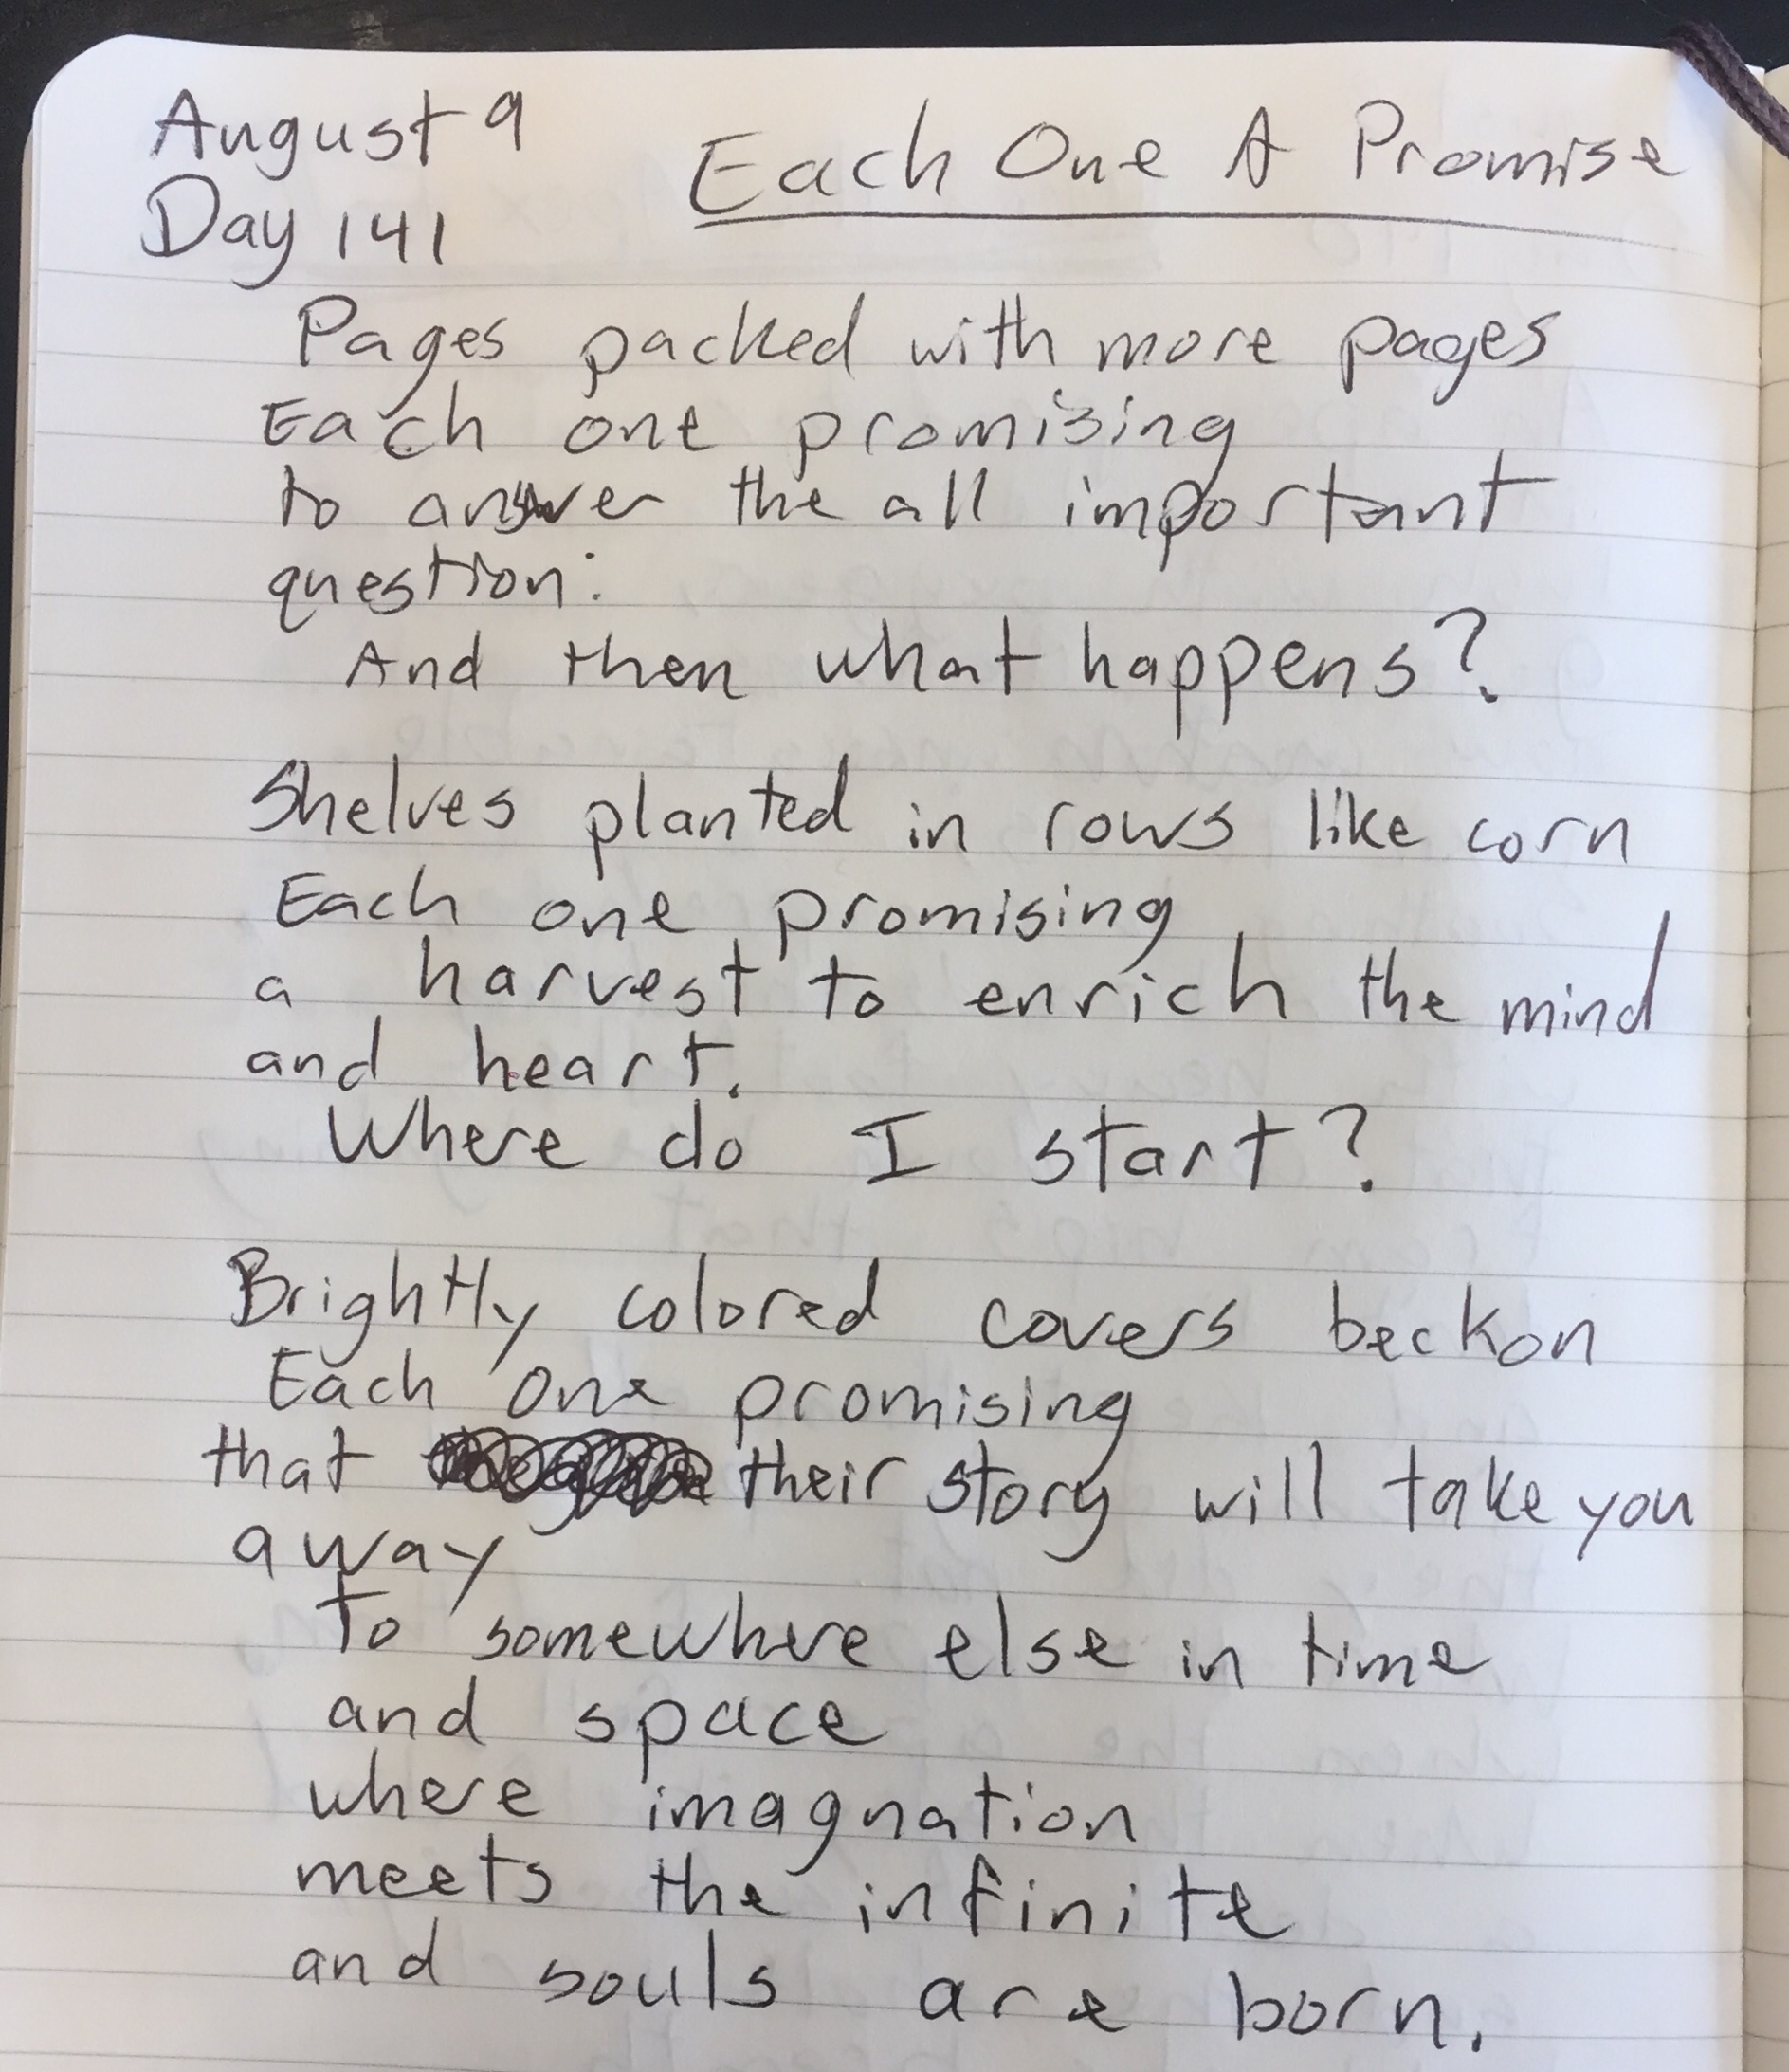 August 9
Each One A Promise
Day 141
Pages packed with more pages
Each one promising
to answer the all important
question:
And then what happens?
Shelves planted in rows like corn
Each one promising
a harvest to enrich the mind
and heart.
Where do I start?
Brightly colored covers beckon
Each one promising
that their story will take you
away
To somewhere else in time
and space
where imagnation
meets the infinite
and souls are born.